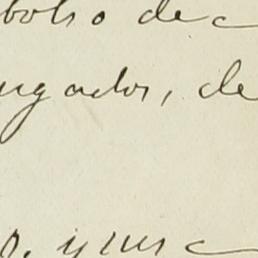 bolso de
ugados, de
o. y una